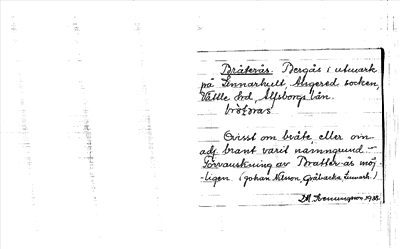 Bråterås. Bergås i utmark
på Linnarhult, Angered socken,
Vättle hrd, Älfsborgs län.
Ovisst om bråte, eller om
adj. brant varit namngrund –
Förvanskning av Bratter-ås möj-
-ligen. (Johan Nilsson, Gråbacka, Lunnarh.)